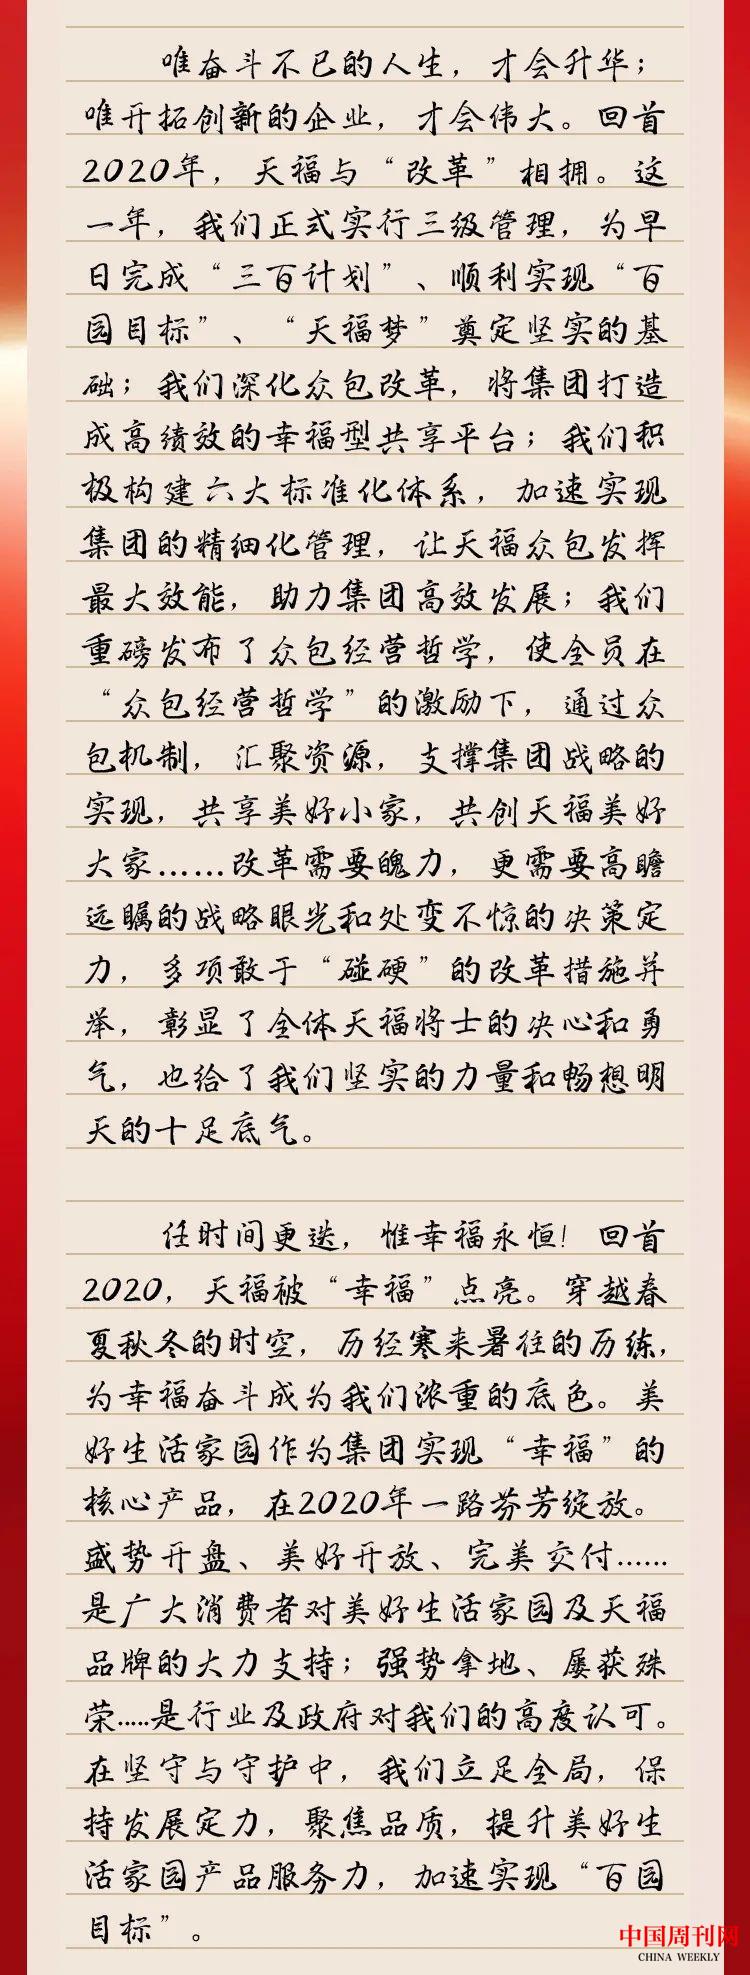 唯奋斗不已的人生，才会升华；
唯开拓创新的企业，才会伟大。回首
2020年，天福与“改革”相拥。这
一年，我们正式实行三级管理，为早
日完成“三百计划”、顺利实现“百
园目标”、“天福梦”奠定坚实的基
础；我们深化众包改革，将集团打造
成高绩效的幸福型共享平台；我们积
极构建六大标准化体系，加速实现
集团的精细化管理，让天福众包发挥
最大效能，助力集团高效发展；我们
重磅发布了众包经营哲学，使全员在
“众包经营哲学”的激励下，通过众
包机制，汇聚资源，支撑集团战略的
实现，共享美好小家，共创天福美好
大家……改革需要魄力，更需要高瞻
远瞩的战略眼光和处变不惊的决策定
力，多项敢于“碰硬”的改革措施并
举，彰显了全体天福将士的决心和勇
气，也给了我们坚实的力量和畅想明
天的十足底气。
任时间更迭，惟幸福永恒！回首
2020，天福被“幸福”点亮。穿越春
夏秋冬的时空，历经寒来暑往的历练，
为幸福奋斗成为我们浓重的底色。美
好生活家园作为集团实现“幸福”的
核心产品，在2020年一路芬芳绽放。
盛势开盘、美好开放、完美交付……
是广大消费者对美好生活家园及天福
品牌的大力支持；强势拿地、屡获殊
荣……是行业及政府对我们的高度认可。
在坚守与守护中，我们立足全局，保
持发展定力，聚焦品质，提升美好生
活家园产品服务力，加速实现“百园
目标”。
中国周刊网
CHINA WEEKLY